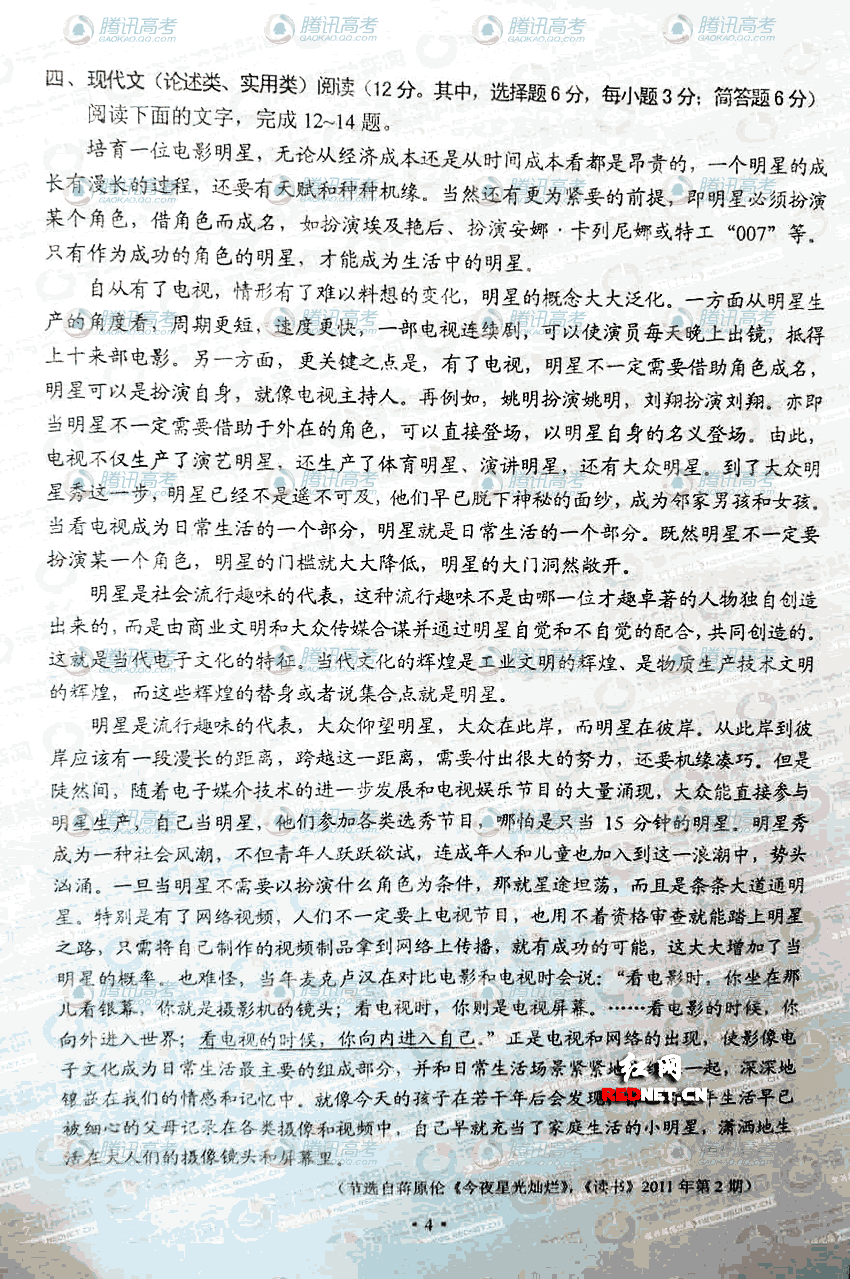 腾讯高考
GAOKAO.QQ.COM
四、现代文（论述类、实用类）阅读（12分。其中，选择题6分，每小题3分；简答题6分）
阅读下面的文字，完成12~14题。
培育一位电影明星，无论从经济成本还是从时间成本看都是昂贵的，一个明星的成
长有漫长的过程，还要有天赋和种种机缘。当然还有更为紧要的前提，即明星必须扮演
某个角色，借角色而成名，如扮演埃及艳后、扮演安娜·卡列尼娜或特工“007”等。
只有作为成功的角色的明星，才能成为生活中的明星。
自从有了电视，情形有了难以料想的变化，明星的概念大大泛化。一方面从明星生
产的角度看，周期更短，速度更快，一部电视连续剧，可以使演员每天晚上出镜，抵得
上十来部电影。另一方面，更关键之点是，有了电视，明星不一定需要借助角色成名，
明星可以是扮演自身，就像电视主持人。再例如，姚明扮演姚明，刘翔扮演刘翔。亦即
当明星不一定需要借助于外在的角色，可以直接登场，以明星自身的名义登场。由此，
电视不仅生产了演艺明星，还生产了体育明星、演讲明星，还有大众明星。到了大众明
星秀这一步，明星已经不是遥不可及，他们早已脱下神秘的面纱，成为邻家男孩和女孩。
当看电视成为日常生活的一个部分，明星就是日常生活的一个部分。既然明星不一定要
扮演某一个角色，明星的门槛就大大降低，明星的大门洞然敞开。
明星是社会流行趣味的代表，这种流行趣味不是由哪一位才趣卓著的人物独自创造
出来的，而是由商业文明和大众传媒合谋并通过明星自觉和不自觉的配合，共同创造的。
这就是当代电子文化的特征。当代文化的辉煌是工业文明的辉煌、是物质生产技术文明
的辉煌，而这些辉煌的替身或者说集合点就是明星。
明星是流行趣味的代表，大众仰望明星，大众在此岸，而明星在彼岸。从此岸到彼
岸应该有一段漫长的距离，跨越这一距离，需要付出很大的努力，还要机缘凑巧。但是
陡然间，随着电子媒介技术的进一步发展和电视娱乐节目的大量涌现，大众能直接参与
明星生产，自己当明星，他们参加各类选秀节目，哪怕是只当 15 分钟的明星。明星秀
成为一种社会风潮，不但青年人跃跃欲试，连成年人和儿童也加入到这一浪潮中，势头
汹涌。一旦当明星不需要以扮演什么角色为条件，那就星途坦荡，而且是条条大道通明
星。特别是有了网络视频，人们不一定要上电视节目，也用不着资格审查就能踏上明星
之路，只需将自己制作的视频制品拿到网络上传播，就有成功的可能，这大大增加了当
明星的概率。也难怪，当年麦克卢汉在对比电影和电视时会说：“看电影时，你坐在那
儿看银幕，你就是摄影机的镜头；看电视时，你则是电视屏幕。……看电影的时候，你
向外进入世界；看电视的时候，你向内进入自己。”正是电视和网络的出现，使影像电
子文化成为日常生活最主要的组成部分，并和日常生活场景紧紧地 一起，深深地
镶嵌在我们的情感和记忆中。就像今天的孩子在若干年后会发现， 生活早已
被细心的父母记录在各类摄像和视频中，自己早就充当了家庭生活的小明星，潇洒地生
活在大人们的摄像镜头和屏幕里。
红网
REDNET.CN
（节选自蒋原伦《今夜星光灿烂》，《读书》2011年第2期）
·4·